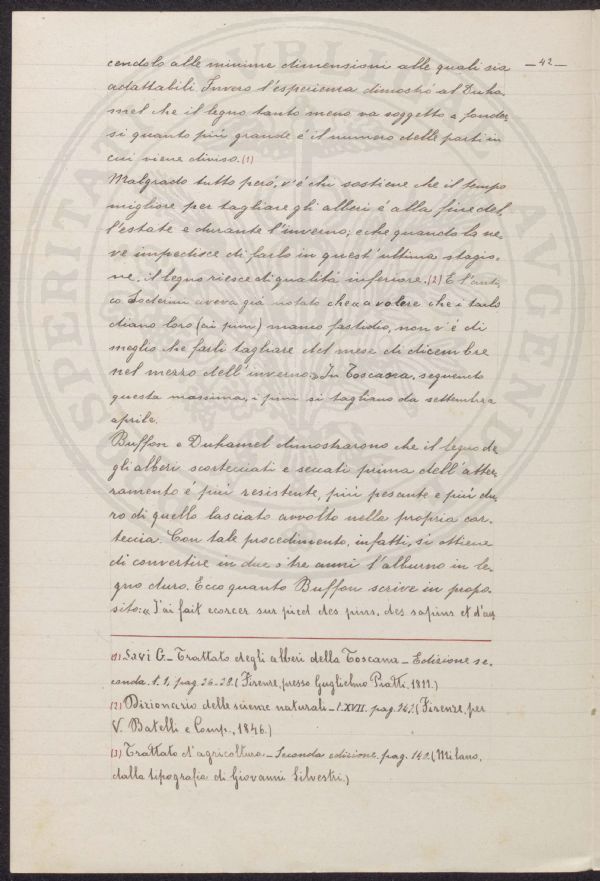 — 42 —
cendolo alle minime dimensioni alle quali sia
adattabili. Invero l'esperienza dimostrò al Duha-
mel che il legno tanto meno va soggetto a fender-
si quanto più grande è il numero delle parti in
cui viene diviso. (1)
Malgrado tutto però, v'è chi sostiene che il tempo
migliore per tagliare gli alberi è alla fine del-
l'estate e durante l'inverno; e che quando la ne-
ve impedisce di farlo in quest'ultima stagio-
ne, il legno riesce di qualità inferiore. (2) E l'anti-
co Soderini aveva già notato che «a volere che i tarli
diano loro (ai pini) manco fastidio, non v'è di
meglio che farli tagliare del mese di dicembre
nel mezzo dell'inverno.» In Toscana, seguendo
questa massima, i pini si tagliano da settembre a
aprile.
Buffon e Duhamel dimostrarono che il legno de-
gli alberi scortecciati e seccati prima dell'atter-
ramento è più resistente, più pesante e più du-
ro di quello lasciato avvolto nella propria cor-
teccia. Con tale procedimento, infatti, si ottiene
di convertire in due o tre anni l'alburno in le-
gno duro. Ecco quanto Buffon scrive in propo-
sito: «J'ai fait ecorcer sur pied des pins, des sapins et d'au-
(1) Savi G. — Trattato degli alberi della Toscana — Edizione se-
conda. t. 1, pag. 26-28. (Firenze, presso Guglielmo Piatti, 1811.)
(2) Dizionario delle scienze naturali — t. XVII. pag. (Firenze, per
V. Batelli e Comp., 1846.)
(3) Trattato d'agricoltura — Seconda edizione. pag. (Milano,
dalla tipografia di Giovanni Silvestri.)
PROSPERITATI PUBLICAE AUGENDAE